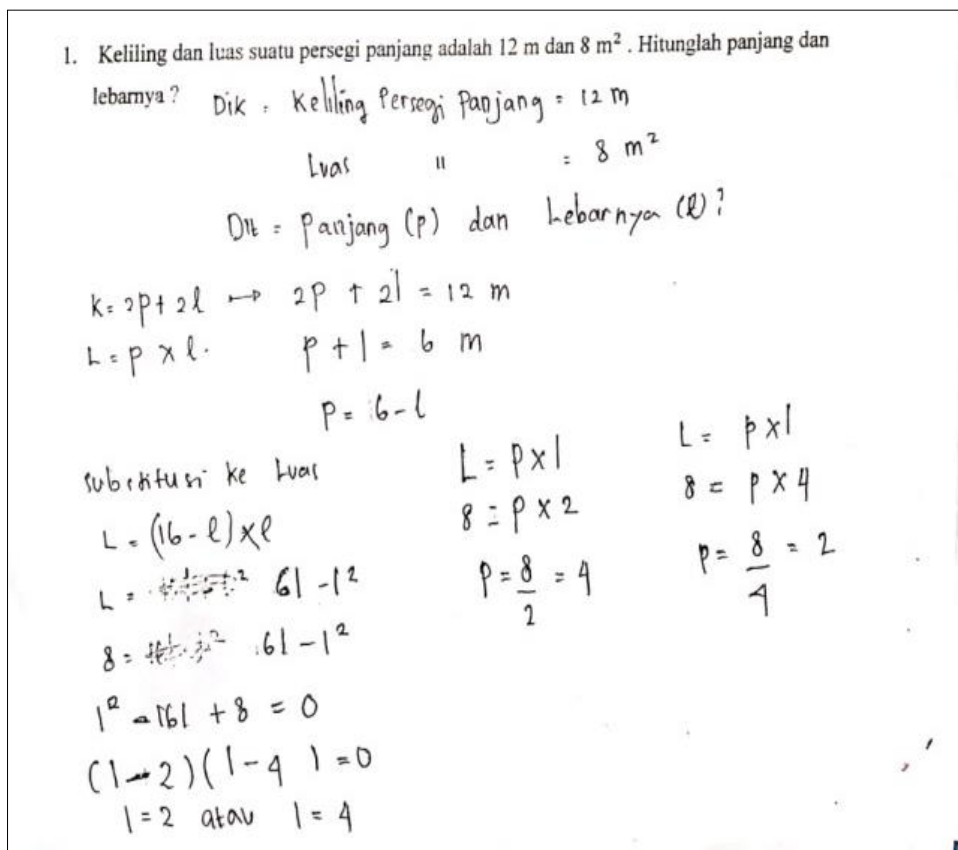 1. Keliling dan luas suatu persegi panjang adalah 12 m dan 8 m². Hitunglah panjang dan
lebarnya ?
Dik : Keliling Persegi Panjang = 12 m
Luas " = 8 m²
Dit = Panjang (p) dan Lebarnya (l) ?
K = 2p + 2l → 2p + 2l = 12 m
L = p x l.
p + l = 6 m
p = 6 - l
substitusi ke Luas
L = (16 - l) x l
L = 6l - l²
8 = 6l - l²
l² - 16l + 8 = 0
(l - 2)(l - 4) = 0
l = 2 atau l = 4
L = p x l
8 = p x 2
p = 8/2 = 4
L = p x l
8 = p x 4
p = 8/4 = 2